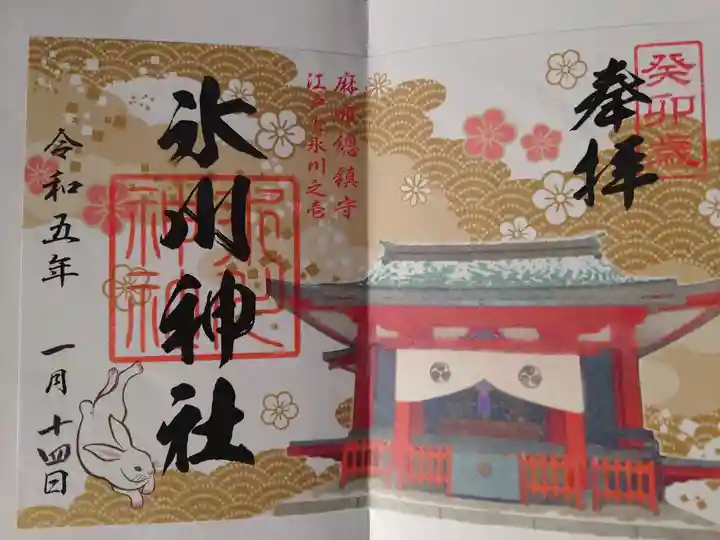 癸卯歳
奉拝
麻布総鎮守
江戸七氷川之壱
氷川神社
氷川神社
令和五年 一月十四日